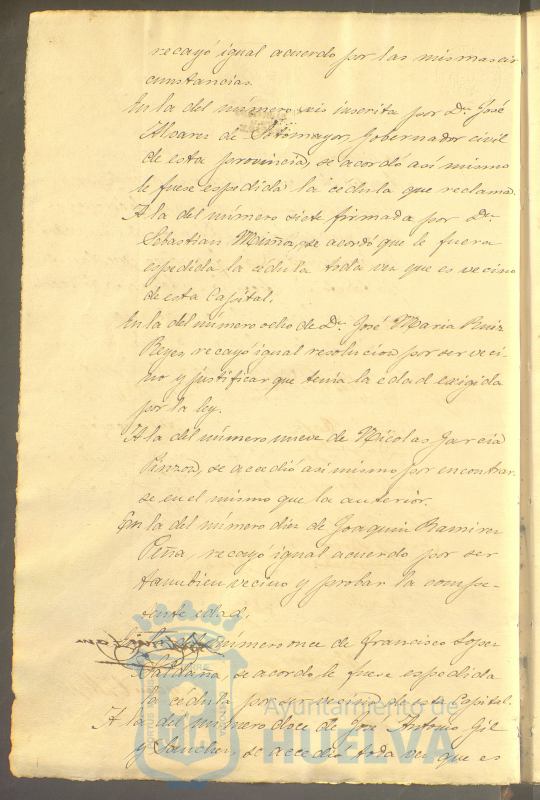 recayó igual acuerdo por las mismas cir
cunstancias.
En la del número seis inscrita por Dn. José
Alvarez de Sotomayor, Gobernador civil
de esta provincia, se acordó asi mismo
le fuese espedida la cédula que reclama.
A la del número siete firmada por Dn.
Sebastian se acordó que le fuera
espedida la cédula toda vez que es vecino
de esta Capital.
En la del número ocho de Dn. José Maria Ruiz
Reyes recayó igual resolucion por ser veci-
no y justificar que tenia la edad exigida
por la ley.
A la del número nueve de Nicolas Garcia
Pinzon, se accedió asi mismo por encontrar-
se en el mismo que la anterior.
En la del número diez de Joaquin Ramirez
Peña recayó igual acuerdo por ser
tambien vecino y probar la compe-
tente edad.
número once de Francisco Lopez
Saldaña, se acordó le fuese espedida
la cédula por ser vecino de esta Capital.
A la del número doce de José Antonio Gil
y Sanchez, se accedió toda vez que es
Ayuntamiento de
HUELVA